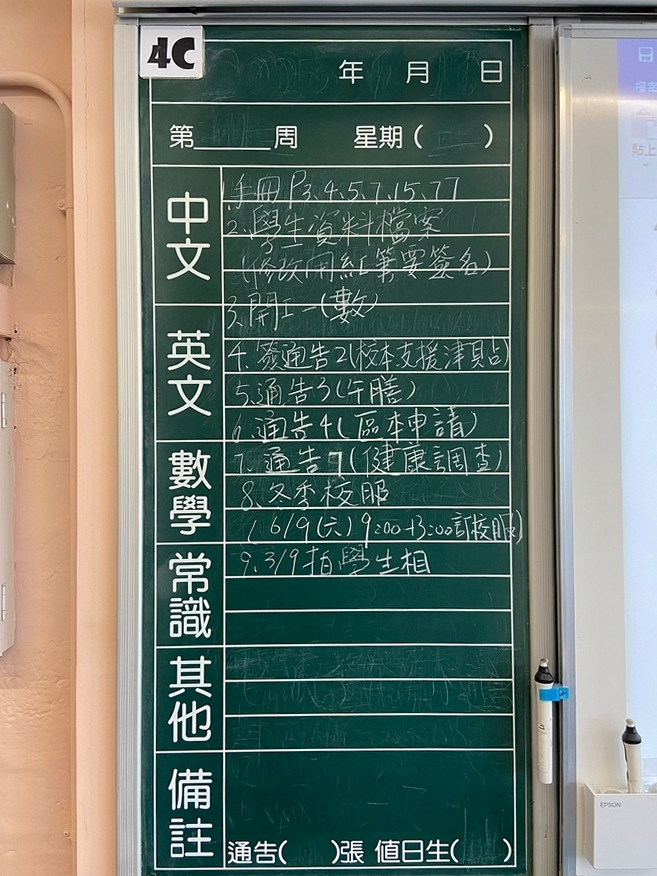 4C
年 月 日
第 周 星期 ( )
中文
1.手冊 P3、4、5、7、15、77
2.學生資料檔案
(修改用紅筆要簽名)
3.開工一(數)
英文
4.簽通告2(校本支援津貼)
5.通告3(午膳)
6.通告4(區本申請)
數學
7.通告7(健康調查)
8.冬季校服
6/9(六) 9:00-13:00訂校服
常識
9.3/9拍學生相
其他
備註
通告( )張 值日生( )
EPSON
貼上